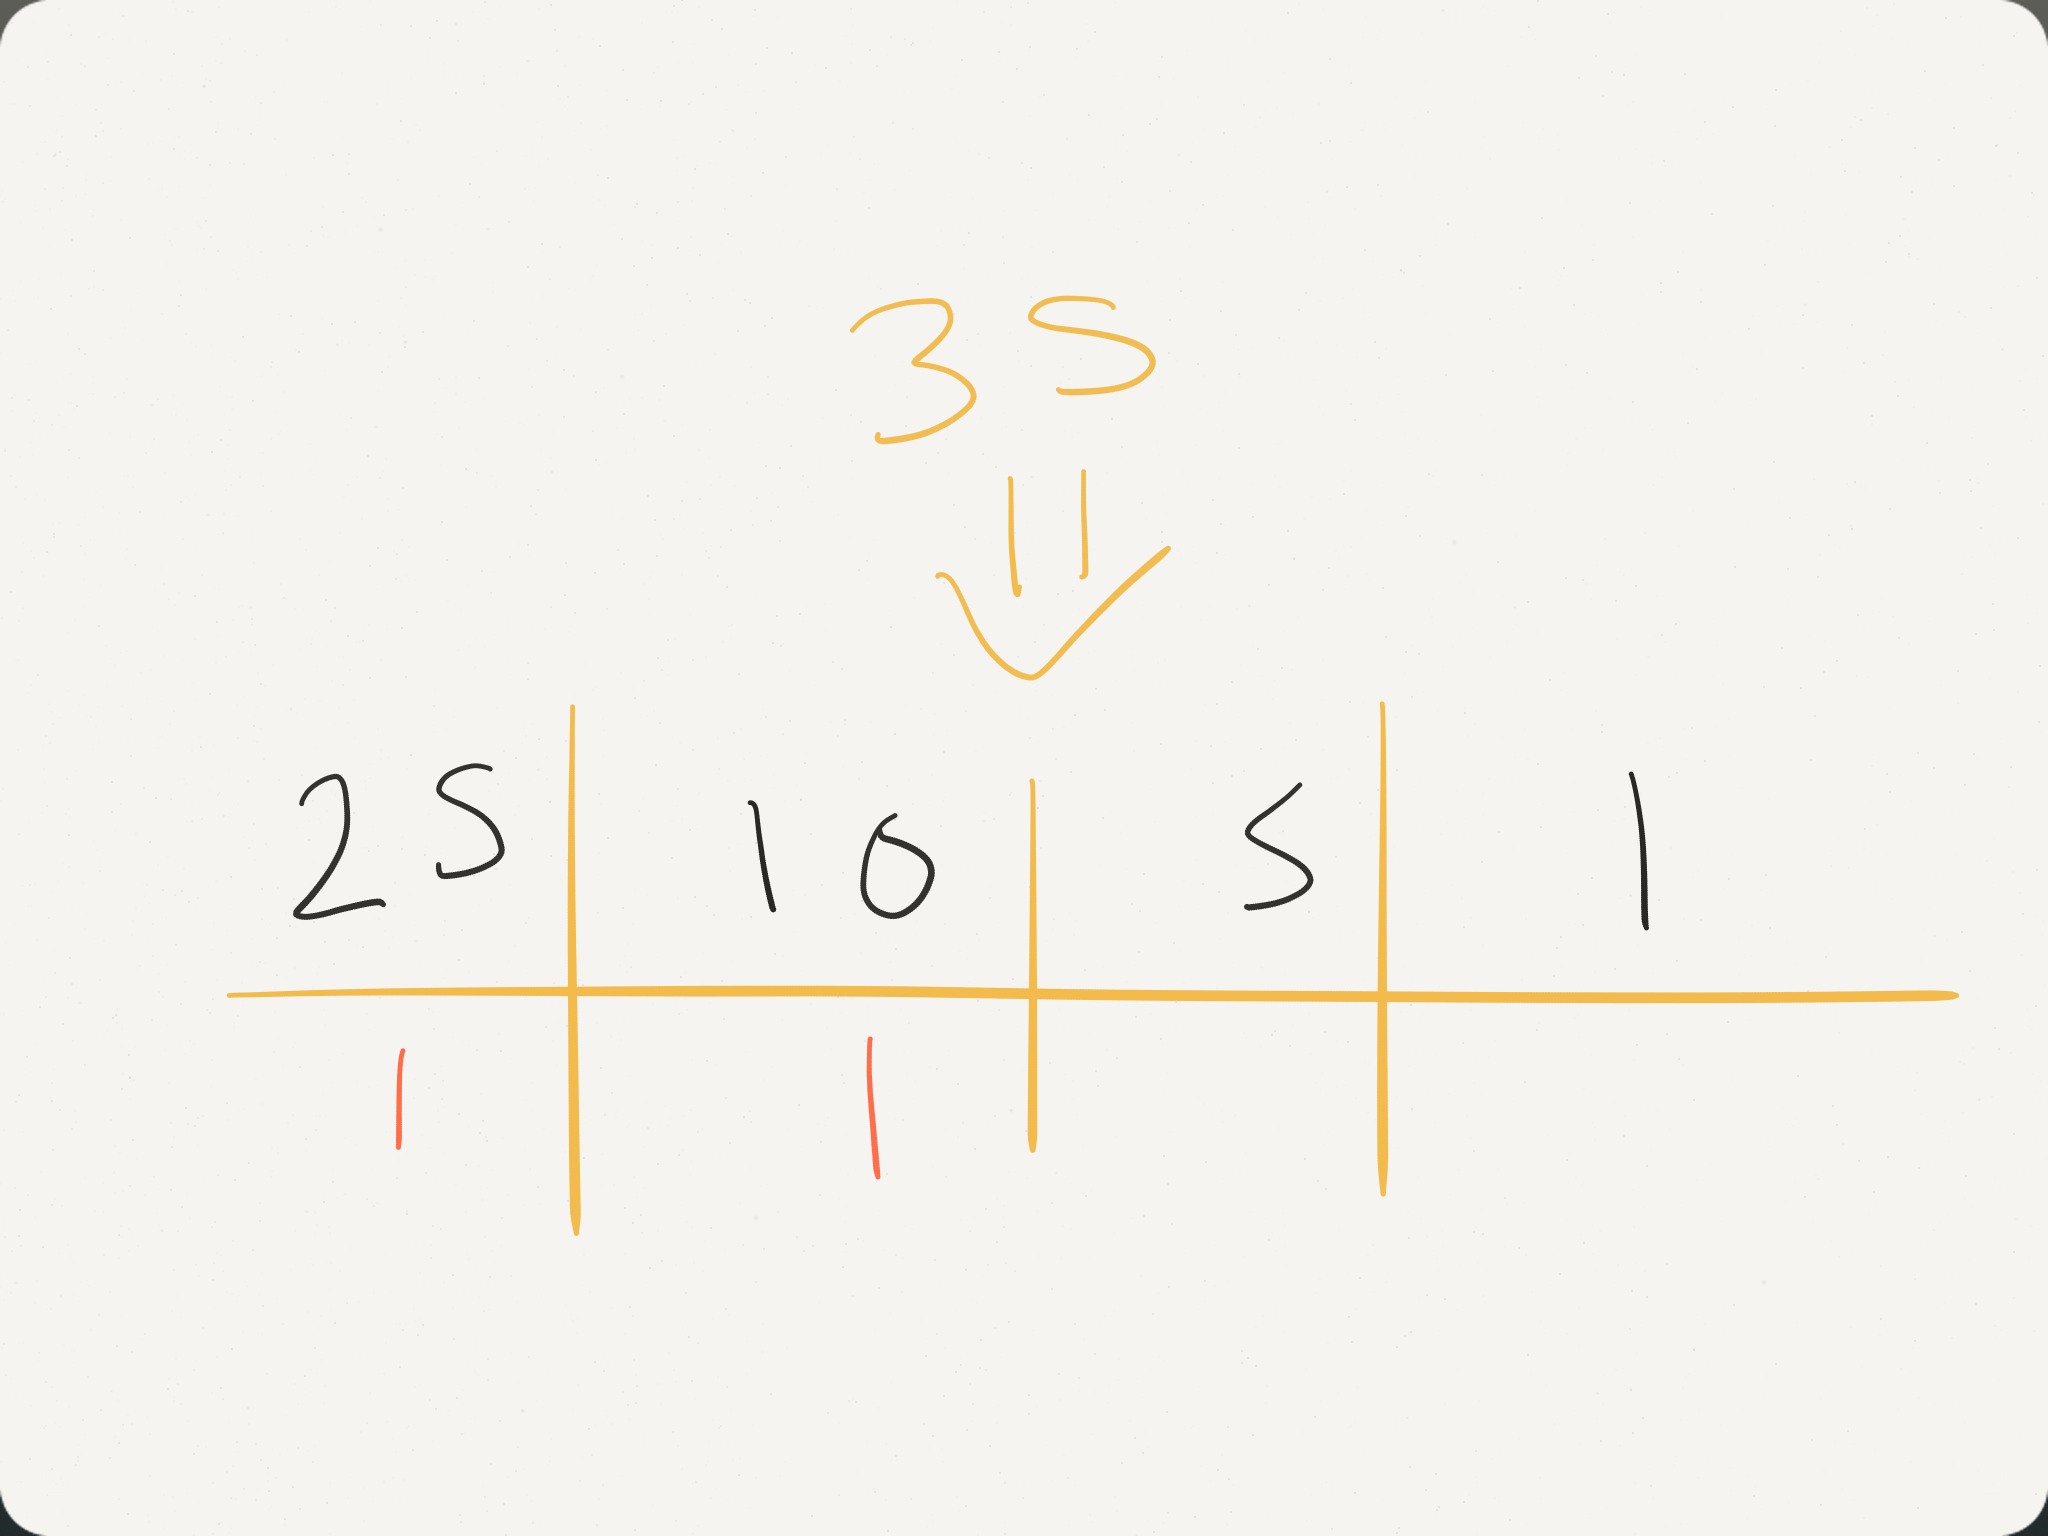 35
25 10 5 1
1 1